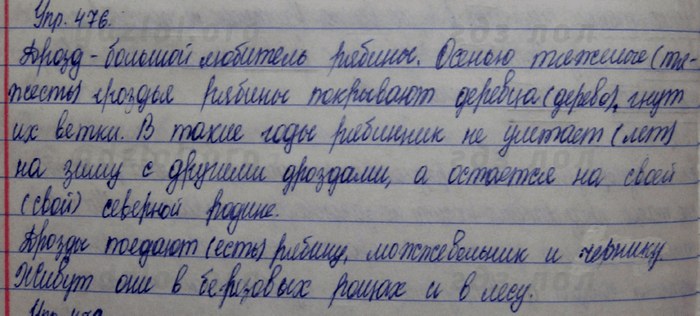 Упр. 476.
Дрозд - большой любитель рябины. Осенью тяжелые (тя-
жесть) гроздья рябины покрывают деревца (дерево), гнут
их ветки. В такие годы рябинник не улетает (лет)
на зиму с другими дроздами, а остается на своей
(свой) северной родине.
Дрозды поедают (есть) рябину, можжевельник и чернику.
Живут они в березовых рощах и в лесу.
Упр. 479